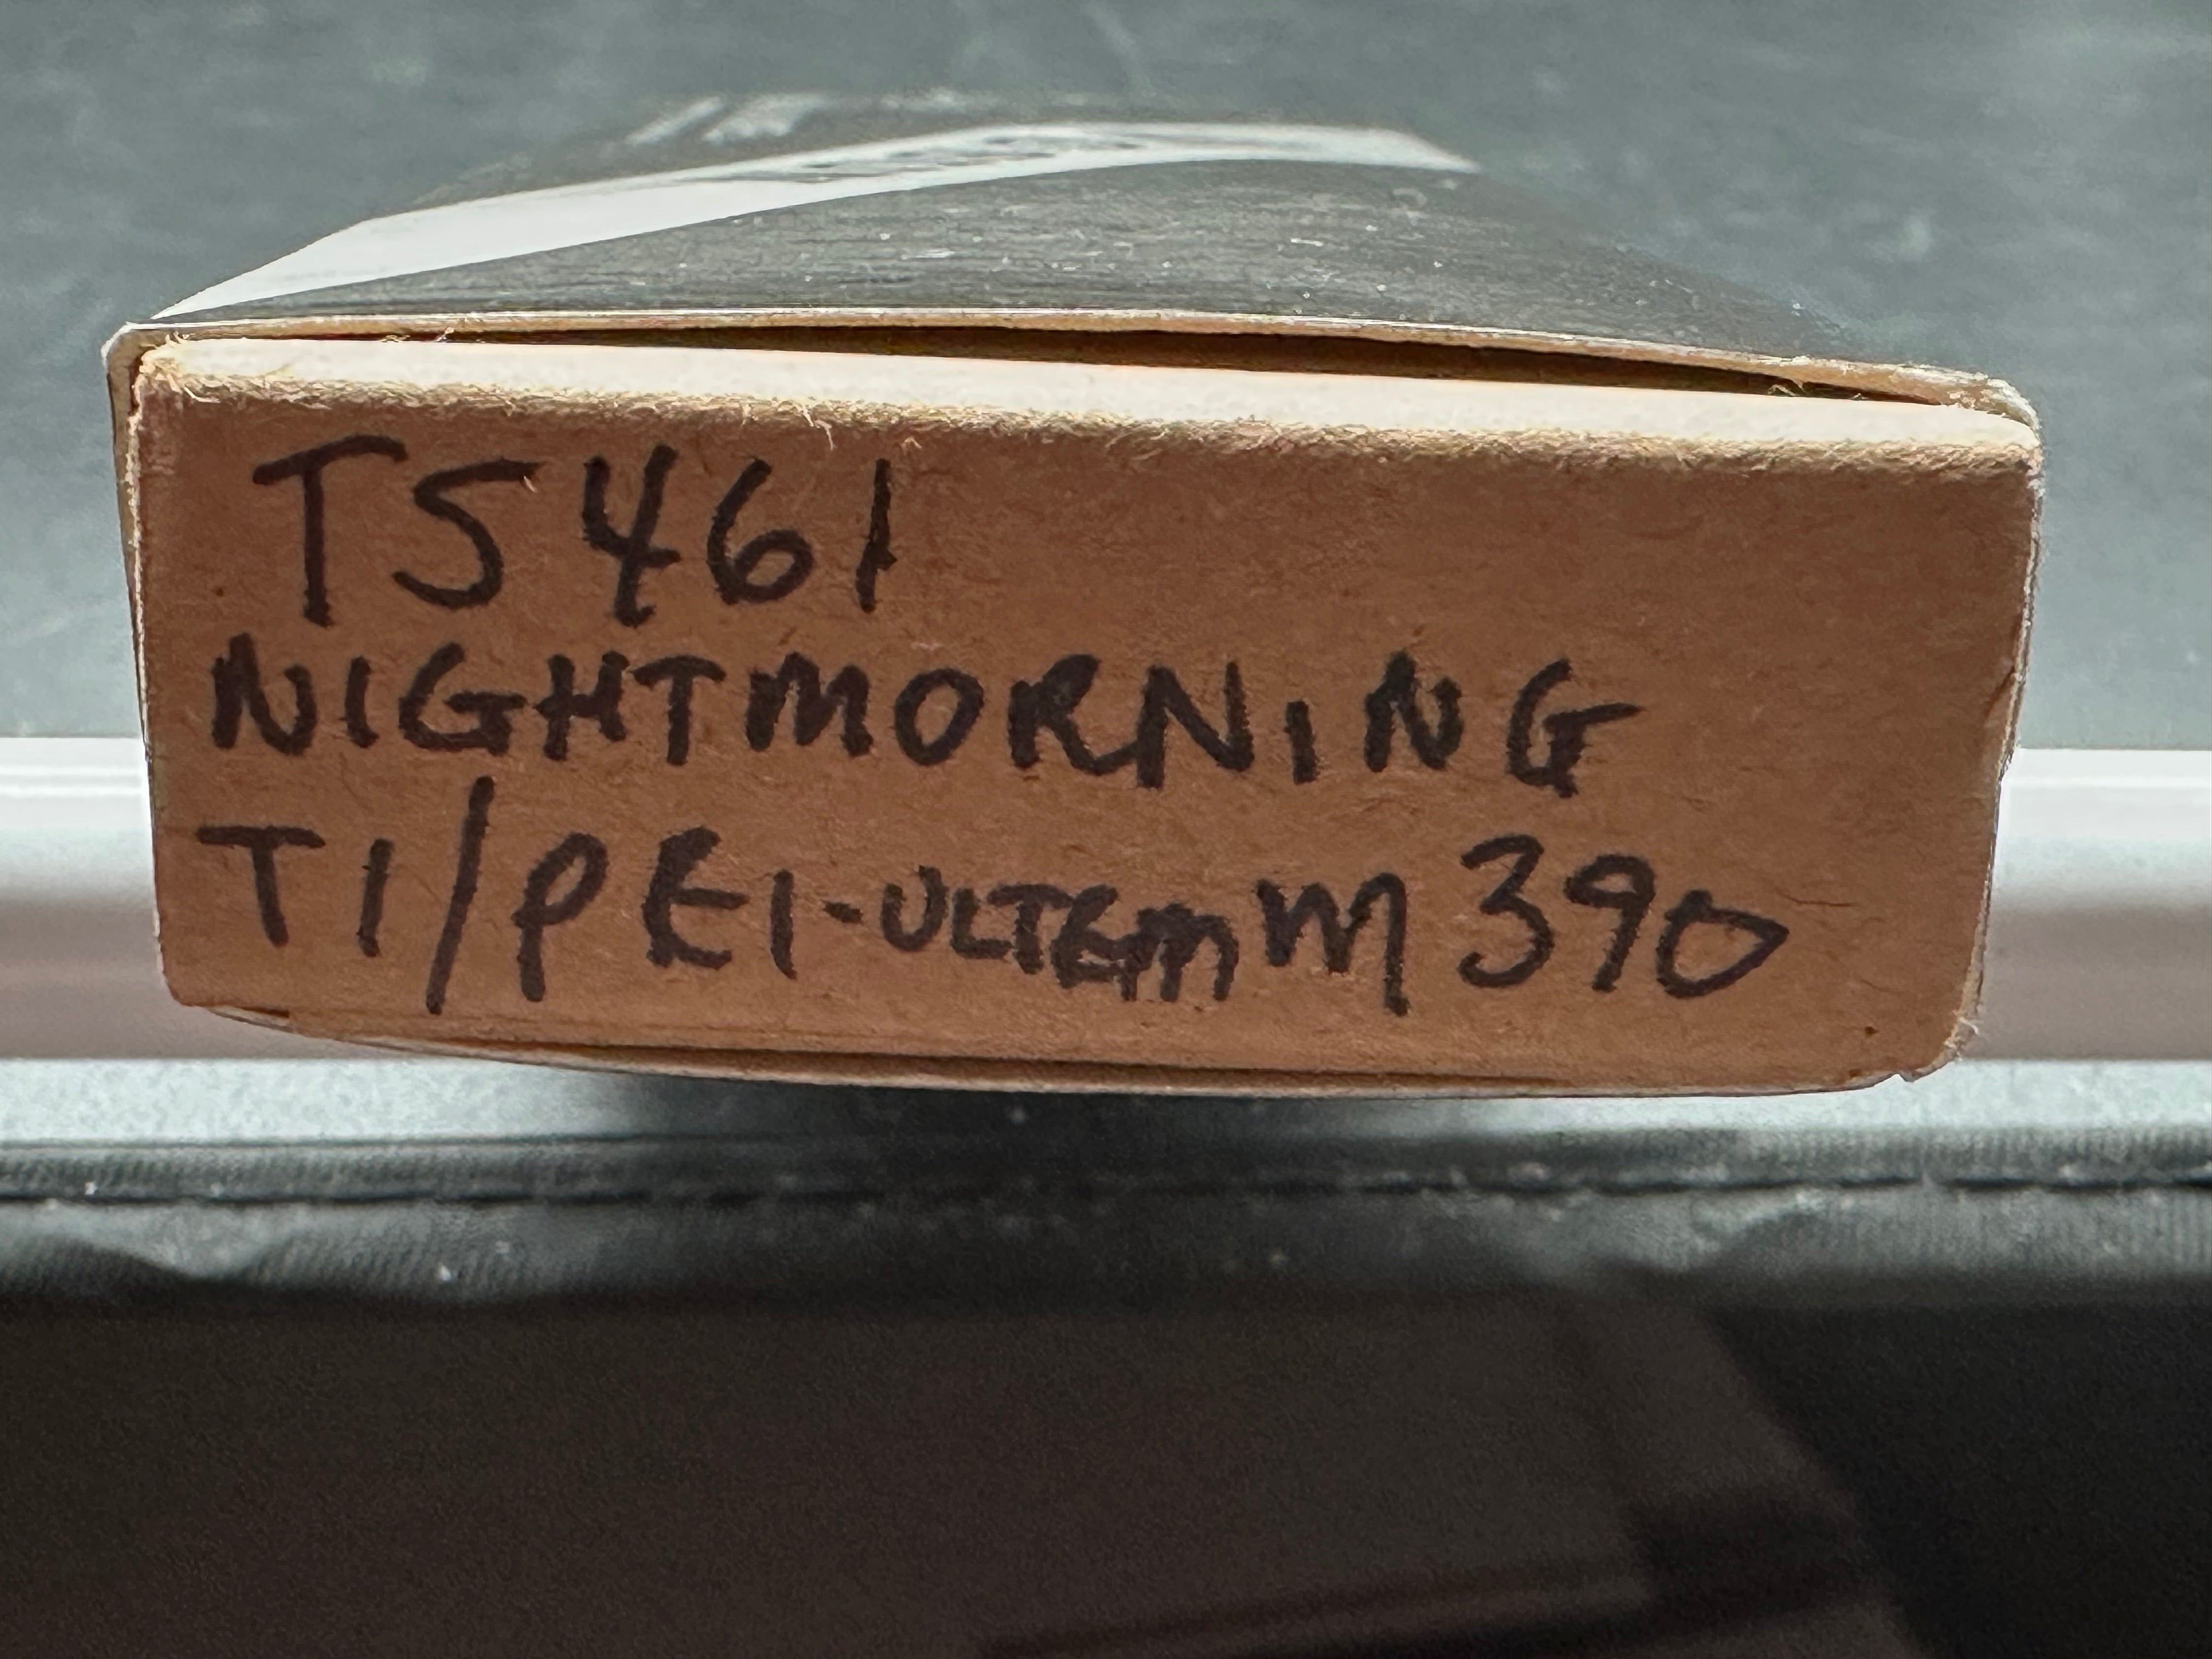 TS461
NIGHTMORNING
TI/PEI-ULTEM M390